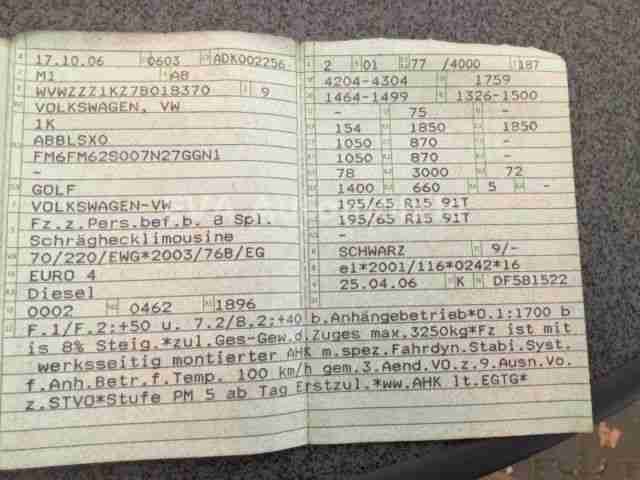 17.10.06 0603 ADK002256
M1 AB
WVWZZZ1KZ7B018370 9
VOLKSWAGEN, VW
1K
ABBLSX0
FM6FM62S007N27GGN1
-
GOLF
VOLKSWAGEN-VW
Fz.z.Pers.bef.b. 8 Spl.
Schräghecklimousine
70/220/EWG*2003/76B/EG
EURO 4
Diesel
0002 0462 1896
2 01 77 /4000 187
4204-4304 1759
1464-1499 1326-1500
- 75 -
154 1850 1850
1050 870 -
1050 870 -
78 3000 72
1400 660 5 -
195/65 R15 91T
195/65 R15 91T
-
SCHWARZ 9/-
e1*2001/116*0242*16
25.04.06 K DF581522
F.1/F.2:+50 u. 7.2/8.2:+40 b.Anhängebetrieb*O.1:1700 b
is 8% Steig.*zul.Ges-Gew.d.Zuges max.3250kg*Fz ist mit
werksseitig montierter AHK m.spez.Fahrdyn.Stabi.Syst.
f.Anh.Betr.f.Temp. 100 km/h gem.3.Aend.VO.z.9.Ausn.Vo.
z.STVO*Stufe PM 5 ab Tag Erstzul.*ww.AHK lt.EGTG*